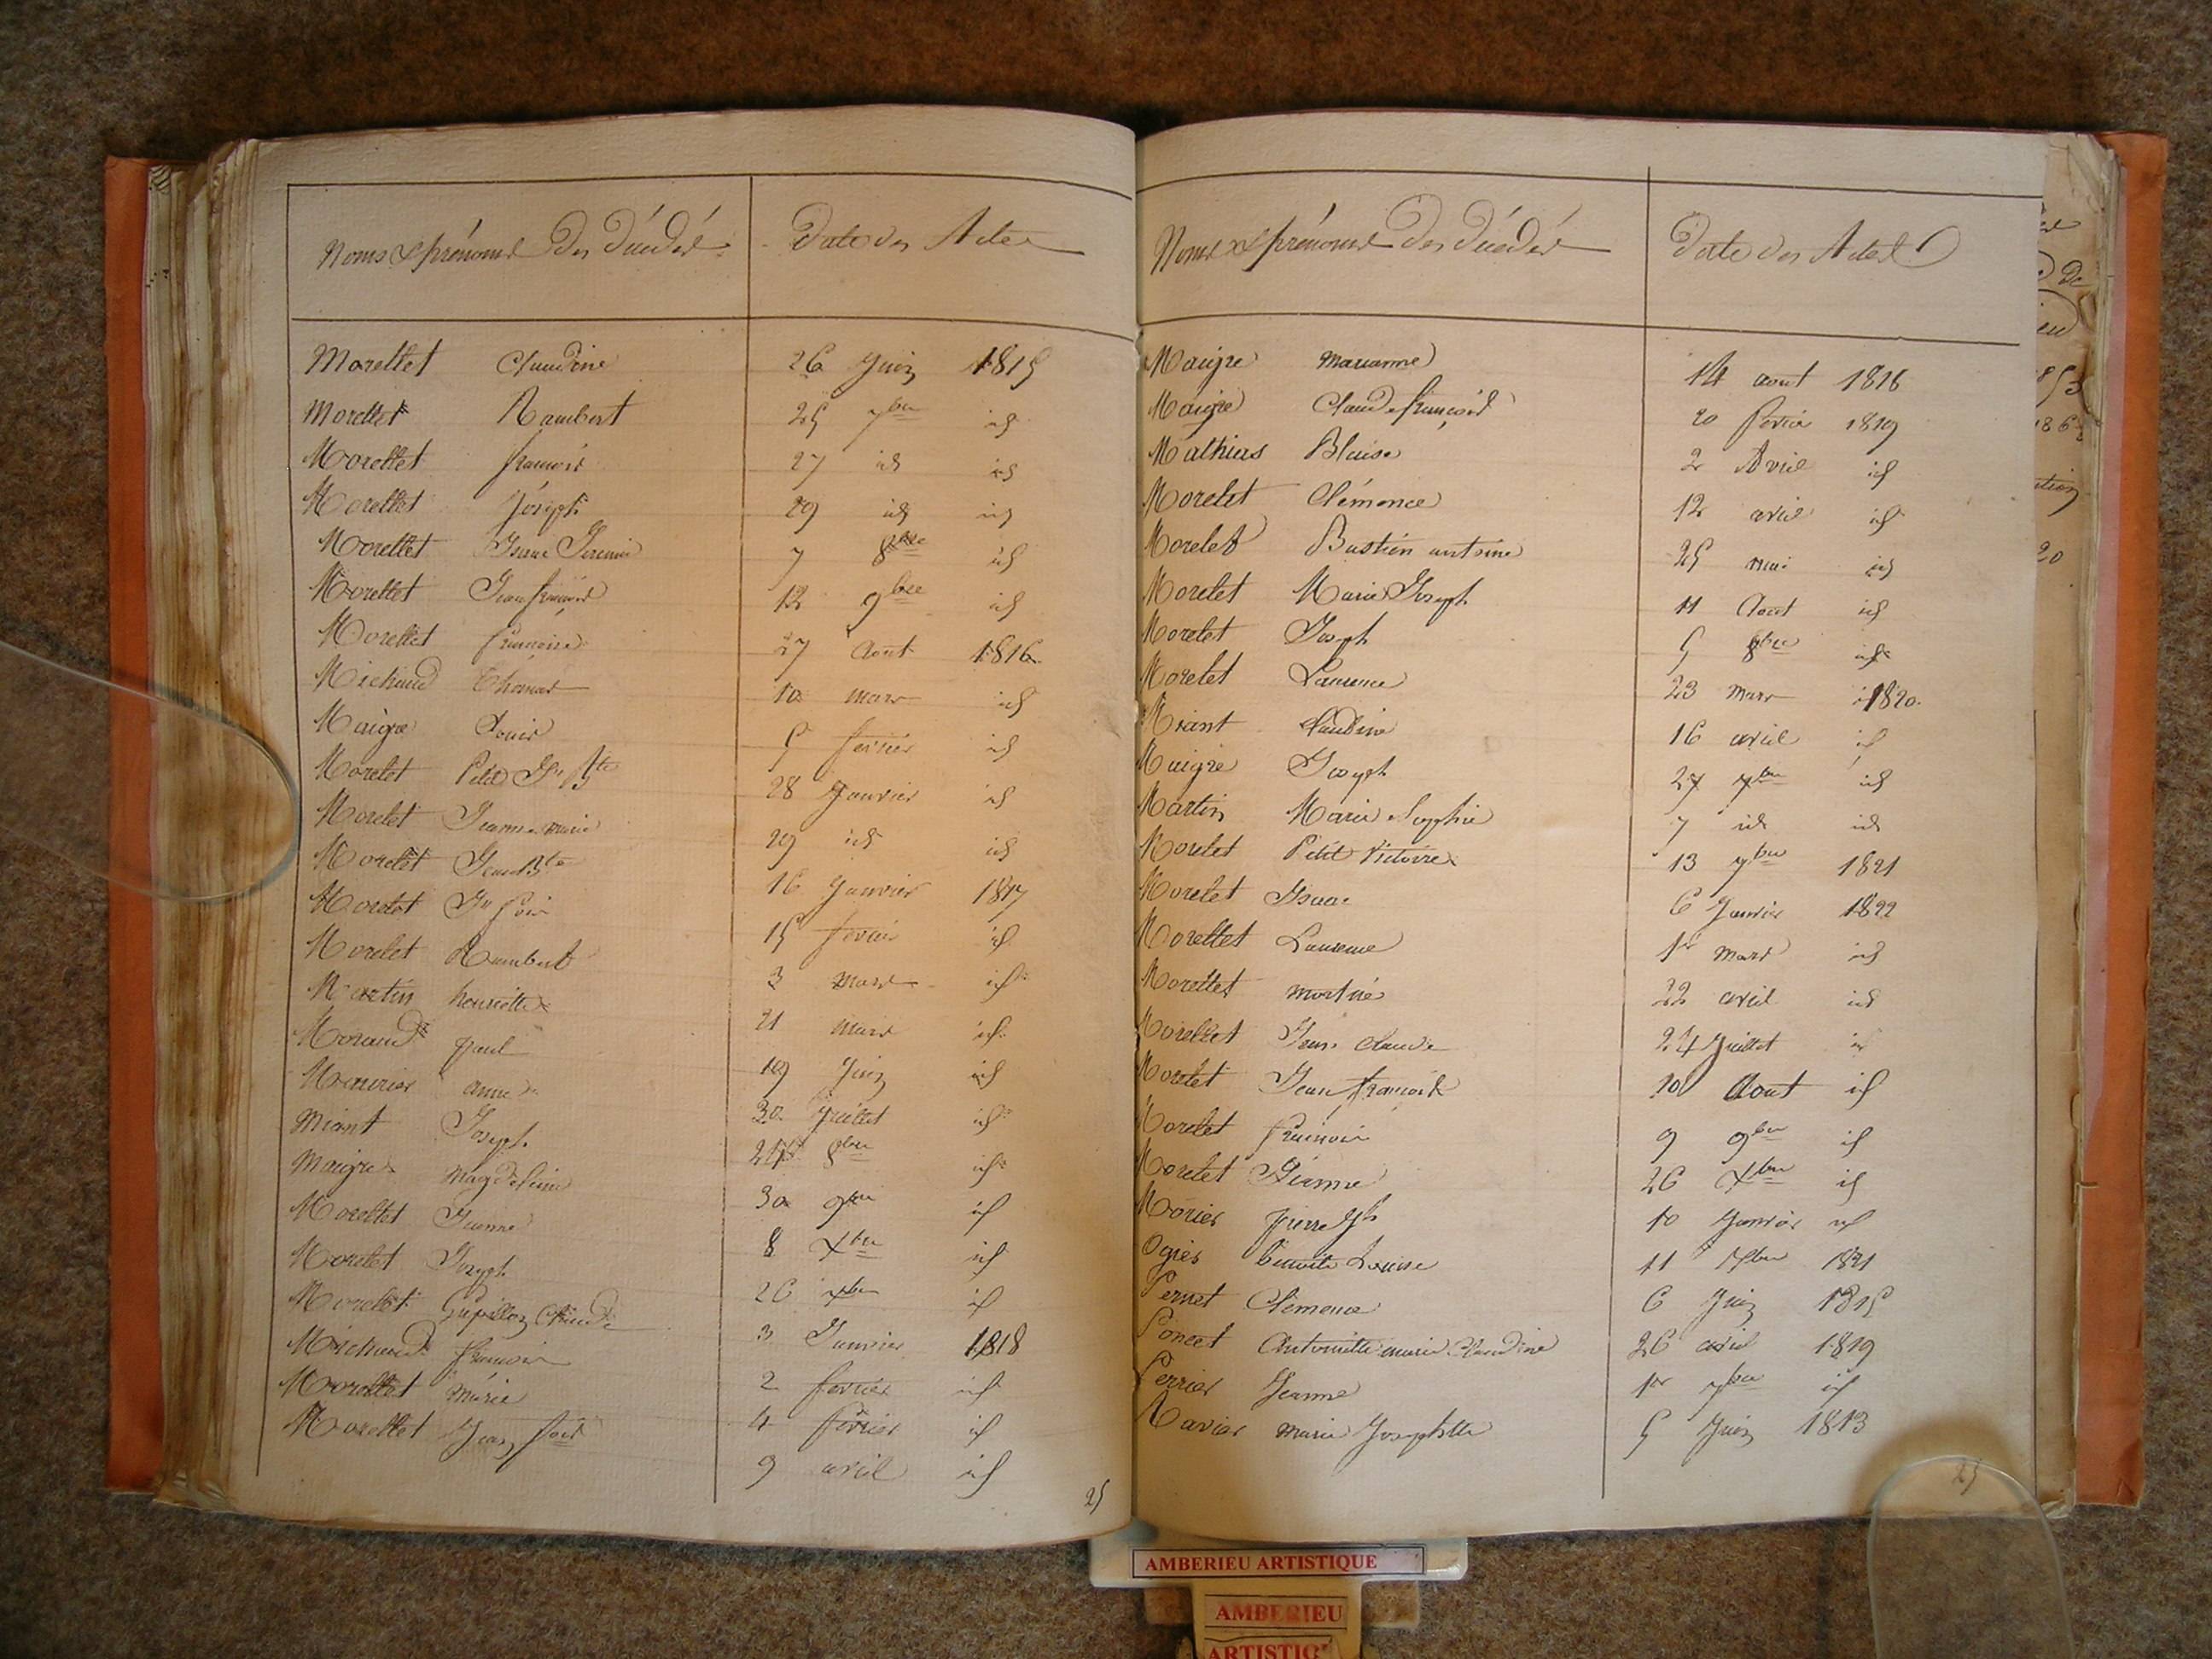 Noms & prénoms des décédés Date des Actes
Morellet Claudine 26 Juin 1815
Morellet Rambert 25 7bre id
Morellet françois 27 id id
Morellet Joseph 29 id id
Morellet Isaac 7 8bre id
Morellet Jean françois 12 9bre id
Morellet françoise 27 Aout 1816
Michaud Thomas 10 mars id
Maigre Louis 5 fevrier id
Morelet Petit Jn Bte 28 Janvier id
Morelet Jeanne marie 29 id id
Morelet Jean Bte 16 Janvier 1817
Morelet Jn 15 fevrier id
Morelet Rambert 3 mars id
Martin henriette 21 mars id
Moraud paul 19 Juin id
anne 30 Juillet id
Miant Joseph 24 8bre id
Maigre Magdeleine 30 9bre id
Morellet Jeanne 8 Xbre id
Morelet Joseph 26 Xbre id
Morelet Claude 3 Janvier 1818
Michaud françois 2 fevrier id
Morellet marie 4 fevrier id
Morellet Jean 9 avril id
25
Noms & prénoms des décédés Date des Actes
Maigre marianne 14 aout 1816
Maigre Claude françois 20 fevrier 1819
Mathias Blaise 2 Avril id
Morelet Clémence 12 avril id
Morelet Bastien antoine 25 mai id
Morelet Marie Joseph 11 Aout id
Morelet Joseph 5 8bre id
Morelet Laurence 23 mars 1820
Miant Claudine 16 avril id
Maigre Joseph 27 7bre id
Martin Marie Sophie 7 id id
Morelet Petit Victoire 13 7bre 1821
Morelet Isaac 6 Janvier 1822
Morellet Laurence 1er mars id
Morellet mort né 22 avril id
Morellet Jean Claude 24 Juillet id
Morelet Jean françois 10 Aout id
Morelet françois 9 9bre id
Morelet Jeanne 26 Xbre id
Morier pierre Jh 10 Janvier id
Ogier benoite Louise 11 7bre 1821
Pernet Clémence 6 Juin 1815
Poncet Antoinette marie Claudine 26 avril 1819
Perrier Jeanne 1er 7bre id
Ravier marie Josephtte 5 Juin 1813
25
AMBERIEU ARTISTIQUE
AMBERIEU